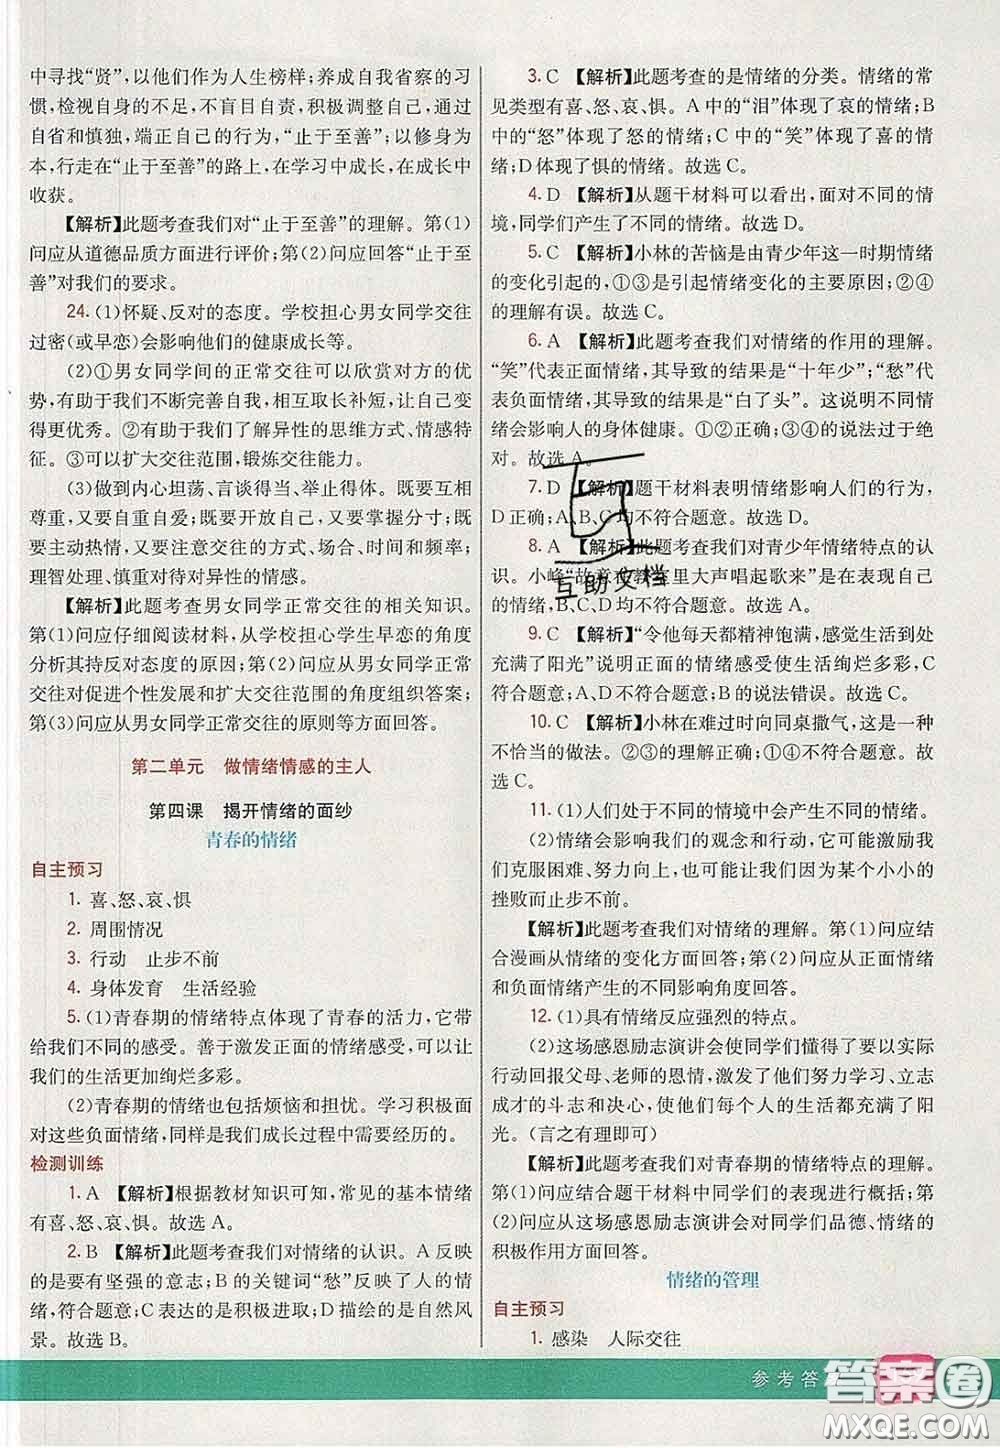 中寻找“贤”,以他们作为人生榜样;养成自我省察的习
惯,检视自身的不足,不盲目自责,积极调整自己;通过
自省和慎独,端正自己的行为,“止于至善”;以修身为
本,行走在“止于至善”的路上,在学习中成长,在成长中
收获。
【解析】此题考查我们对“止于至善”的理解。第(1)
问应从道德品质方面进行评价;第(2)问应回答“止于至
善”对我们的要求。
24. (1)怀疑、反对的态度。学校担心男女同学交往
过密(或早恋)会影响他们的健康成长等。
(2)①男女同学间的正常交往可以欣赏对方的优
势,有助于我们不断完善自我,相互取长补短,让我们变
得更优秀。②有助于我们了解异性的思维方式、情感特
征。③可以扩大交往范围,锻炼交往能力。
(3)做到内心坦荡、言谈得当、举止得体。既要互相
尊重,又要自重自爱;既要开放自己,又要掌握分寸;既
要主动热情,又要注意交往的方式、场合、时间和频率;
理智处理、慎重对待对异性的情感。
【解析】此题考查男女同学正常交往的相关知识。
第(1)问应仔细阅读材料,从学校担心学生早恋的角度
分析其持反对态度的原因;第(2)问应从男女同学正常
交往对促进个性发展和扩大交往范围的角度组织答案;
第(3)问应从男女同学正常交往的原则等方面回答。
第二单元　做情绪情感的主人
第四课　揭开情绪的面纱
青春的情绪
自主预习
1. 喜、怒、哀、惧
2. 周围情况
3. 行动　止步不前
4. 身体发育　生活经验
5. (1)青春期的情绪特点体现了青春的活力,它带
给我们不同的感受。善于激发正面的情绪感受,可以让
我们的生活更加绚烂多彩。
(2)青春期的情绪也包括烦恼和担忧。学习积极面
对这些负面情绪,同样是我们成长过程中需要经历的。
检测训练
1. A　【解析】根据教材知识可知,常见的基本情绪
有喜、怒、哀、惧。故选 A。
2. B　【解析】此题考查我们对情绪的认识。A 反映
的是要有坚强的意志;B 的关键词“愁”反映了人的情
绪,符合题意;C 表达的是积极进取;D 描绘的是自然风
景。故选 B。
3. C　【解析】此题考查的是情绪的分类。情绪的常
见类型有喜、怒、哀、惧。A 中的“泪”体现了哀的情绪;B
中的“怒”体现了怒的情绪;C 中的“笑”体现了喜的情
绪;D 体现了惧的情绪。故选 C。
4. D　【解析】从题干材料可以看出,面对不同的情
境,同学们产生了不同的情绪。故选 D。
5. C　【解析】小林的苦恼是由青少年这一时期情绪
的变化引起的,①③是引起情绪变化的主要原因;②④
的理解有误。故选 C。
6. A　【解析】此题考查我们对情绪的作用的理解。
“笑”代表正面情绪,其导致的结果是“十年少”;“愁”代
表负面情绪,其导致的结果是“白了头”。这说明不同情
绪会影响人的身体健康。①②正确;③④的说法过于绝
对。故选 A。
7. D　【解析】题干材料表明情绪影响人们的行为,
D 正确;A、B、C 均不符合题意。故选 D。
8. A　【解析】此题考查我们对青少年情绪特点的认
识。小峰“故意在教室里大声唱起歌来”是在表现自己
的情绪,B、C、D 均不符合题意。故选 A。
9. C　【解析】“令他每天都精神饱满,感觉生活到处
充满了阳光”说明正面的情绪感受使生活绚烂多彩,C
符合题意;A、D 不符合题意;B 的说法错误。故选 C。
10. C　【解析】小林在难过时向同桌撒气,这是一种
不恰当的做法。②③的理解正确;①④不符合题意。故
选 C。
11. (1)人们处于不同的情境中会产生不同的情绪。
(2)情绪会影响我们的观念和行动,它可能激励我
们克服困难、努力向上,也可能让我们因为某个小小的
挫败而止步不前。
【解析】此题考查我们对情绪的理解。第(1)问应结
合漫画从情绪的变化方面回答;第(2)问应从正面情绪
和负面情绪产生的不同影响角度回答。
12. (1)具有情绪反应强烈的特点。
(2)这场感恩励志演讲会使同学们懂得了要以实际
行动回报父母、老师的恩情,激发了他们努力学习、立志
成才的斗志和决心,使他们每个人的生活都充满了阳
光。(言之有理即可)
【解析】此题考查我们对青春期的情绪特点的理解。
第(1)问应结合题干材料中同学们的表现进行概括;第
(2)问应从这场感恩励志演讲会对同学们品德、情绪的
积极作用方面回答。
情绪的管理
自主预习
1. 感染　人际交往
互助文档
参考答
答案圈
MXQE.COM